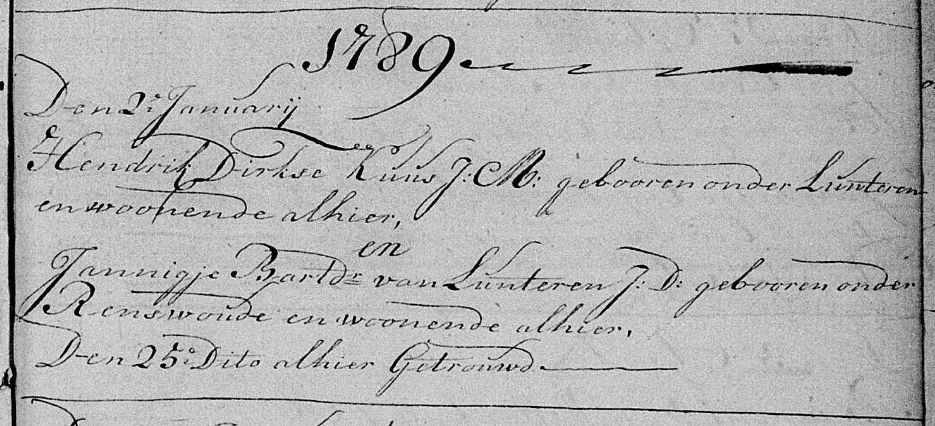 1789
Den 2e Januarij
Hendrik Dirkse Kuus J: M: gebooren onder Lunteren
en woonende alhier,
en
Jannigje Bartdr van Lunteren J: D: gebooren onder
Renswoude en woonende alhier,
Den 25e Dito alhier Getrouwd